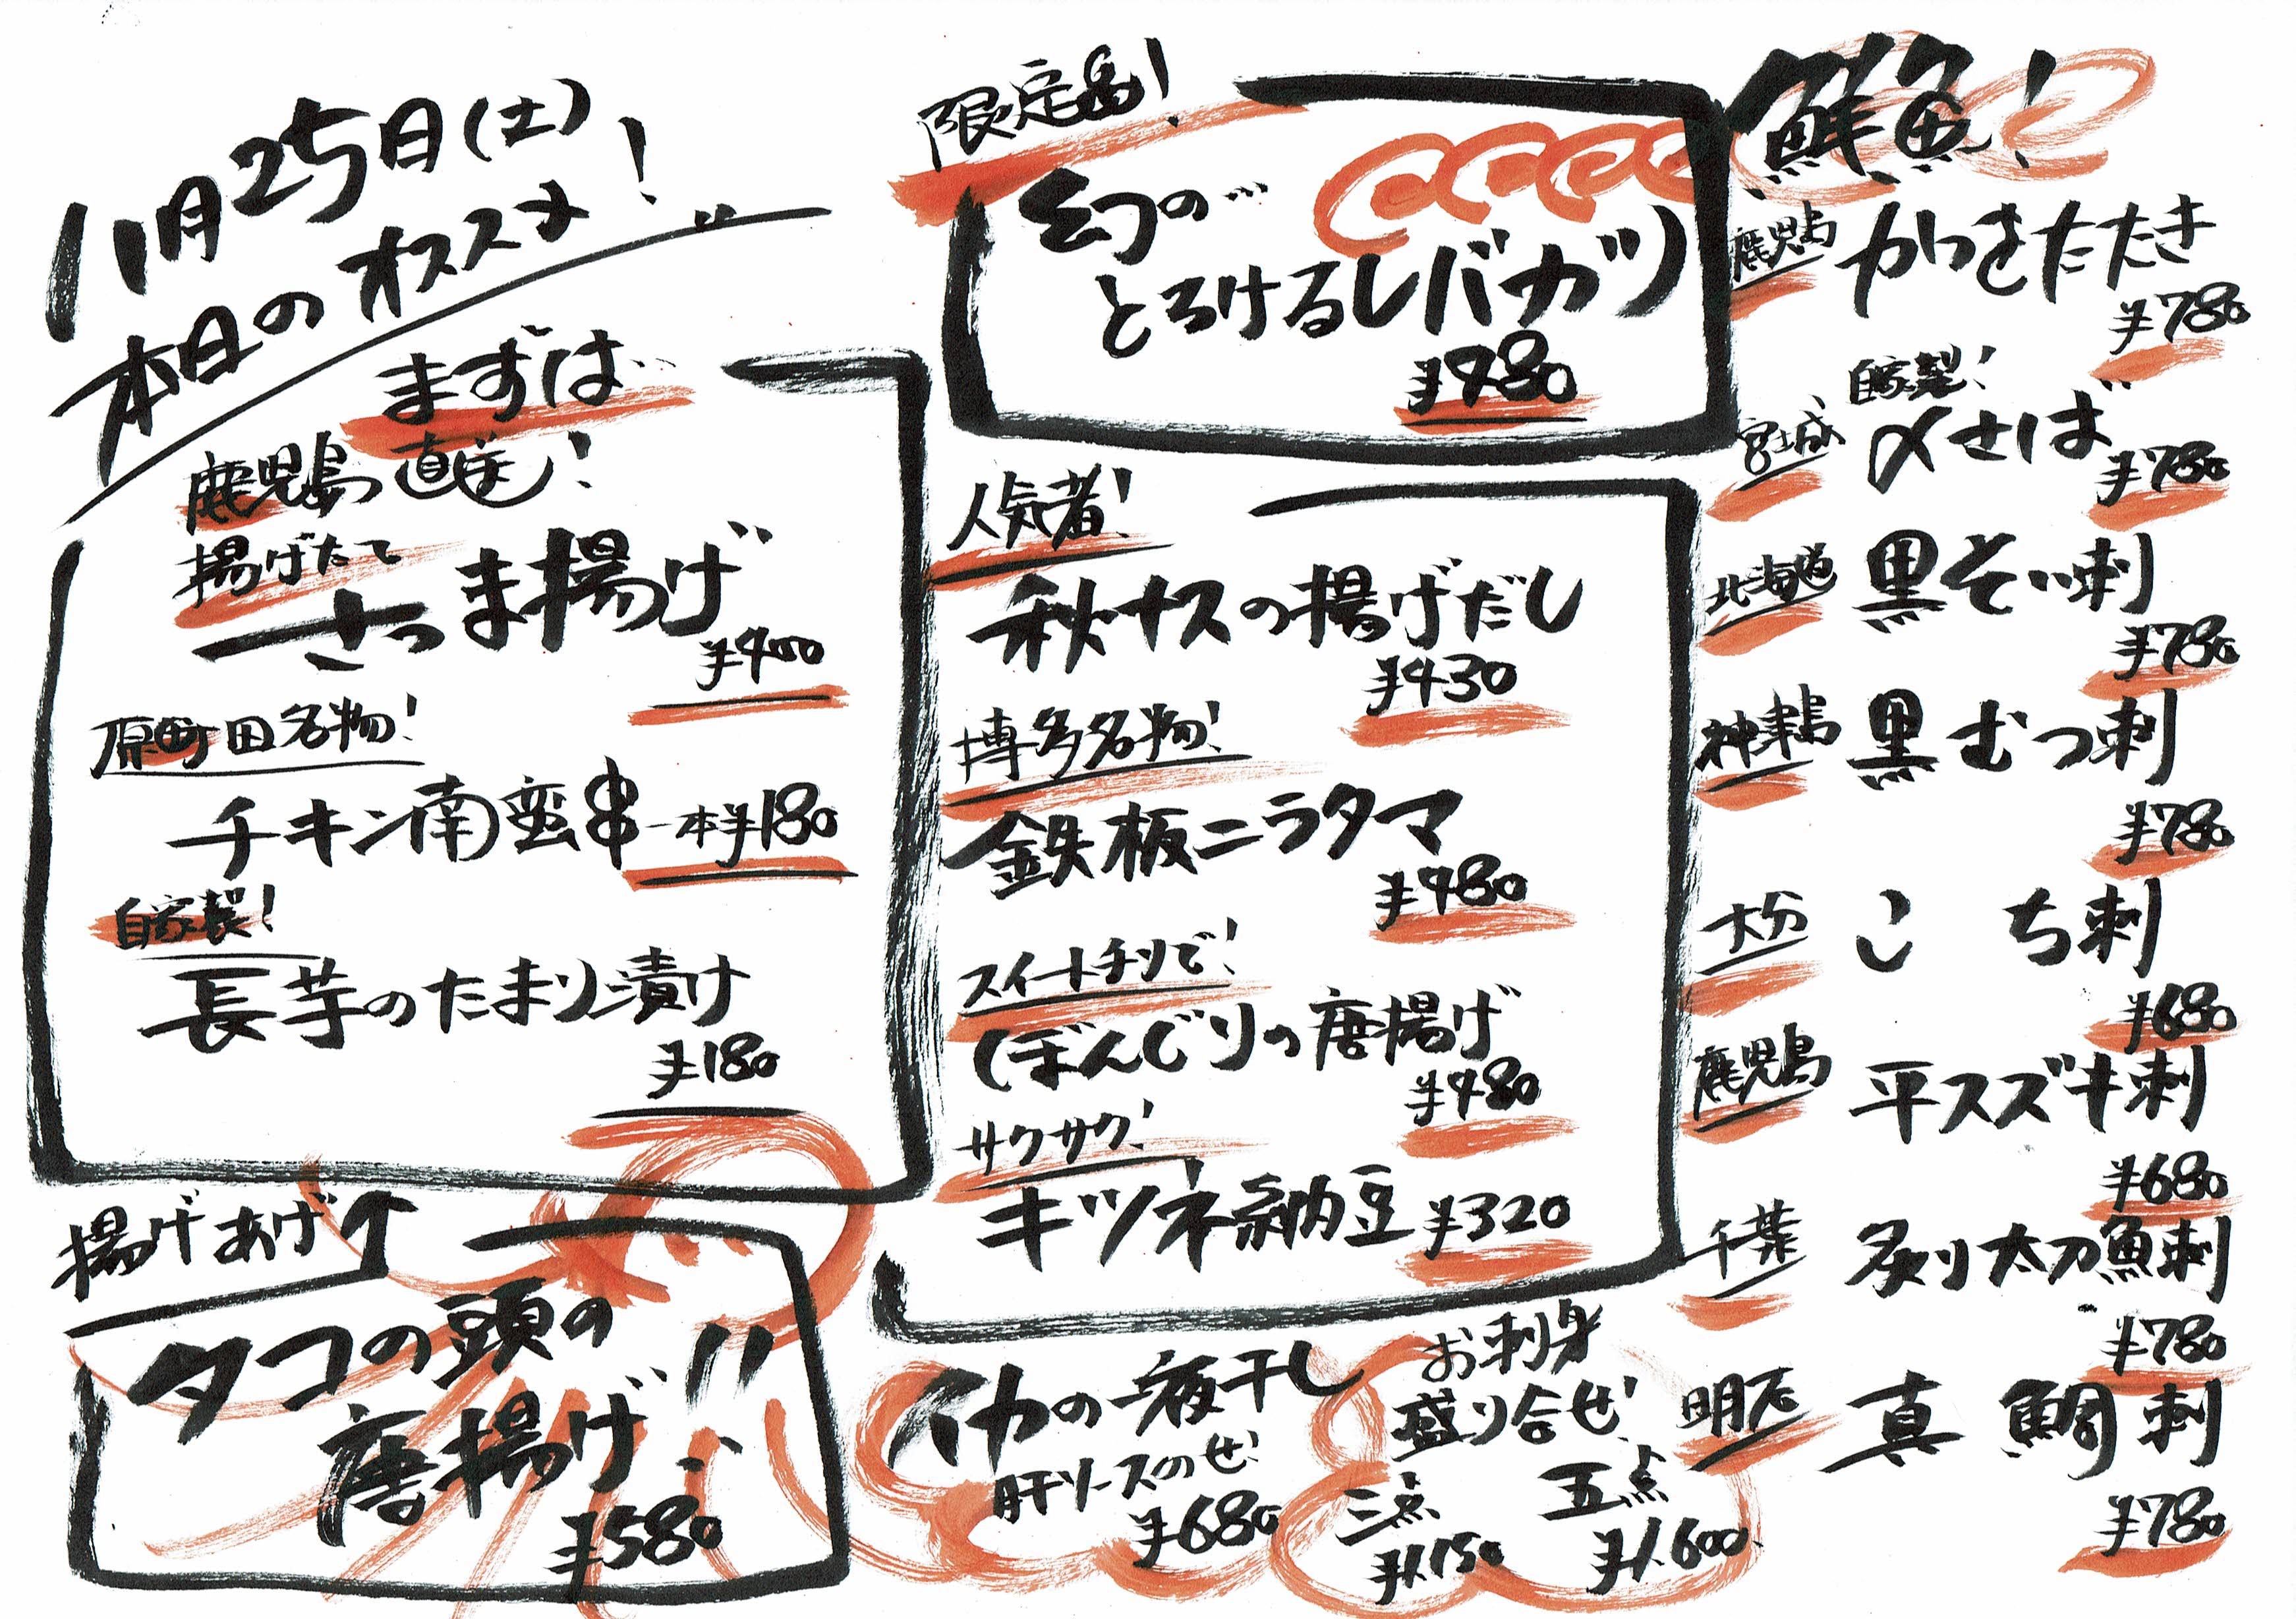 11月25日(土)
本日のオススメ!
まずは…
鹿児島直送!
揚げたて
さつま揚げ
¥400
原町田名物!
チキン南蛮串 一本¥180
自家製!
長芋のたまり漬け
¥180
揚げあげ↑
タコの頭の
唐揚げ!!
¥580
限定品!
幻の…
とろけるレバカツ
¥480
人気者!
秋ナスの揚げだし
¥430
博多名物!
鉄板ニラタマ
¥480
スイートチリで!
ぼんじりの唐揚げ
¥480
サクサク!
キツネ納豆 ¥320
イカの一夜干し
肝ソースのせ!
¥680
お刺身
盛り合せ!
三点
¥1.150
五点
¥1.600
鮮魚!
鹿児島 かつをたたき
¥780
自家製!
宮城 〆さば
¥780
北海道 黒そい刺
¥780
神津島 黒むつ刺
¥780
大分 こち刺
¥680
鹿児島 平スズキ刺
¥680
千葉 炙り太刀魚刺
¥780
明石 真鯛刺
¥780